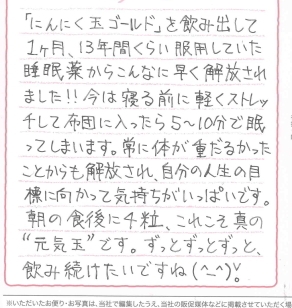 「にんにく玉ゴールド」を飲み出して
1ヶ月、13年間くらい服用していた
睡眠薬からこんなに早く解放され
ました!!今は寝る前に軽くストレッ
チして布団に入ったら5〜10分で眠
ってしまいます。常に体が重だるかった
ことからも解放され、自分の人生の目
標に向かって気持ちがいっぱいです。
朝の食後に4粒、これこそ真の
“元気玉”です。ずっとずっとずっと、
飲み続けたいですね(^-^)!
※いただいたお便り・お写真は、当社で編集したうえ、当社の販促媒体などに掲載させていただく場